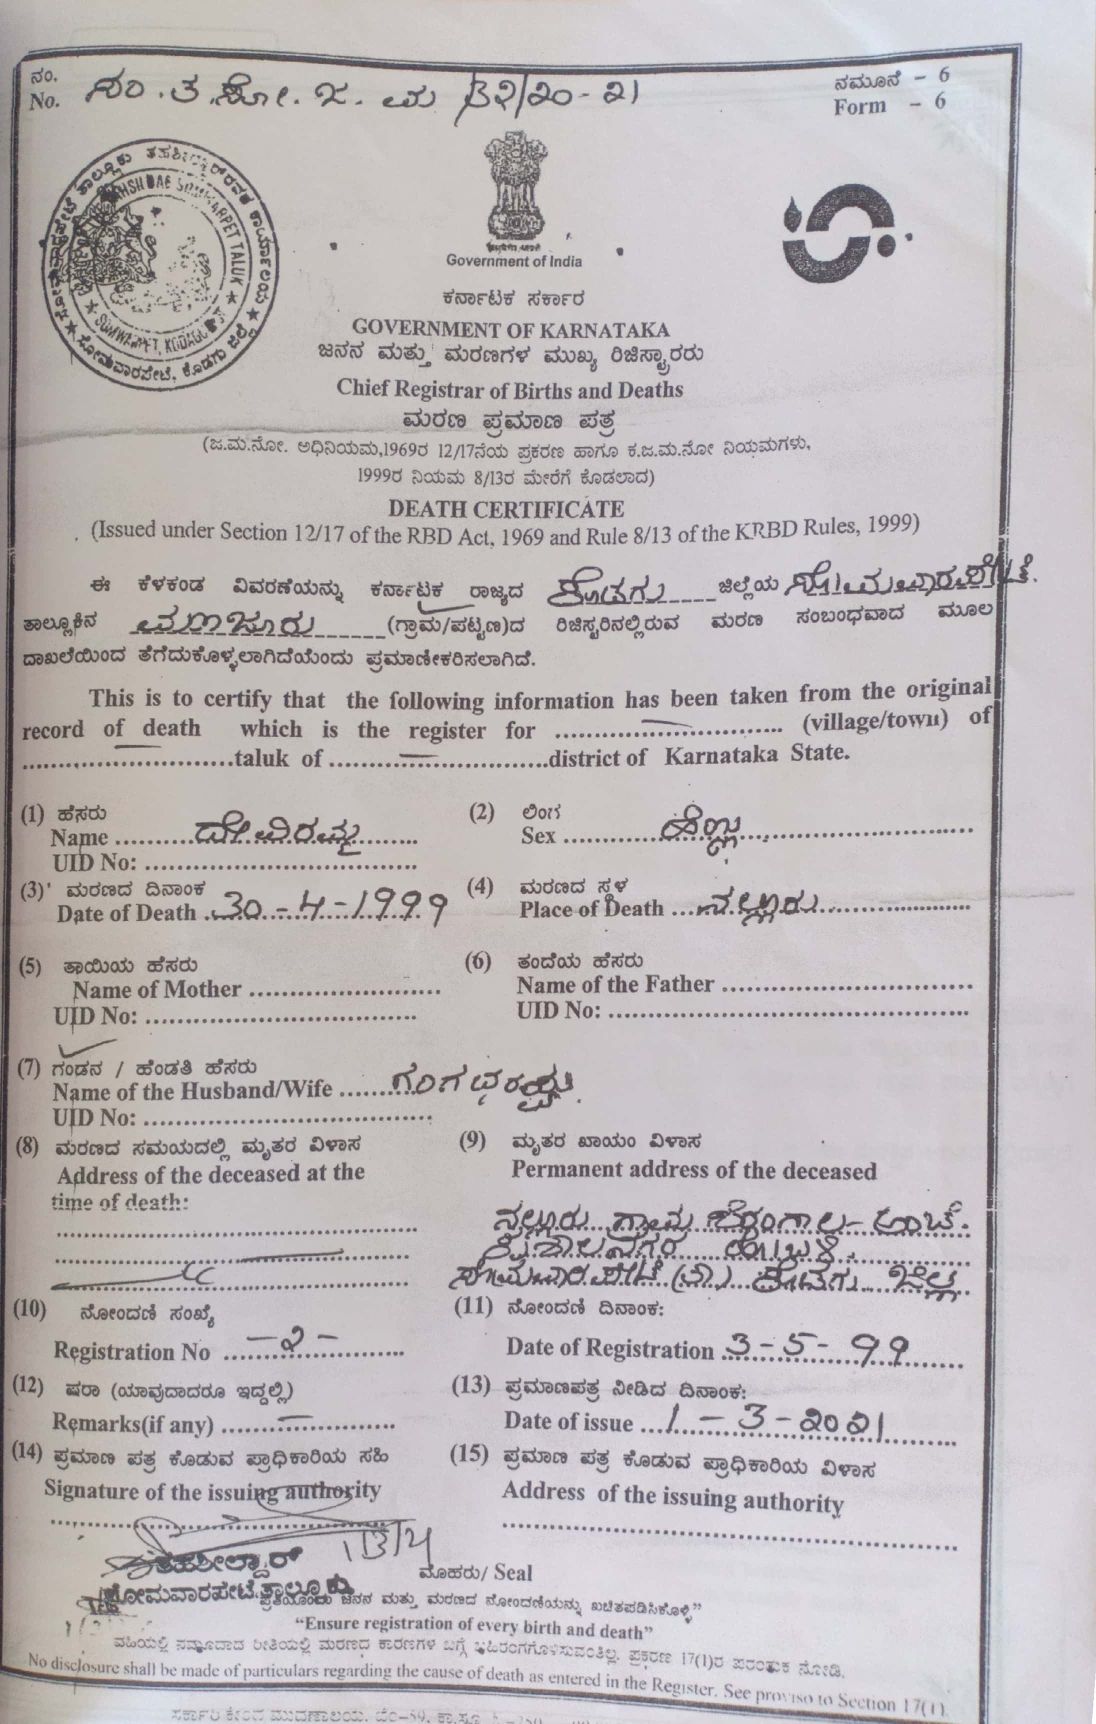 ನಂ. ನಮೂನೆ - 6
No. ಸಂ.ತ.ಸೋ.ಜ.ಮ /32/20-21 Form - 6
ಸೋಮವಾರಪೇಟೆ ತಾಲ್ಲೂಕು ತಹಶೀಲ್ದಾರ್‌ರವರ ಕಾರ್ಯಾಲಯ
ಸೋಮವಾರಪೇಟೆ, ಕೊಡಗು ಜಿಲ್ಲೆ
TALUK
SOMWARPET, KODAGU
Government of India
ಕರ್ನಾಟಕ ಸರ್ಕಾರ
GOVERNMENT OF KARNATAKA
ಜನನ ಮತ್ತು ಮರಣಗಳ ಮುಖ್ಯ ರಿಜಿಸ್ಟ್ರಾರರು
Chief Registrar of Births and Deaths
ಮರಣ ಪ್ರಮಾಣ ಪತ್ರ
(ಜ.ಮ.ನೋ. ಅಧಿನಿಯಮ,1969ರ 12/17ನೆಯ ಪ್ರಕರಣ ಹಾಗೂ ಕ.ಜ.ಮ.ನೋ ನಿಯಮಗಳು,
1999ರ ನಿಯಮ 8/13ರ ಮೇರೆಗೆ ಕೊಡಲಾದ)
DEATH CERTIFICATE
(Issued under Section 12/17 of the RBD Act, 1969 and Rule 8/13 of the KRBD Rules, 1999)
ಈ ಕೆಳಕಂಡ ವಿವರಣೆಯನ್ನು ಕರ್ನಾಟಕ ರಾಜ್ಯದ ಕೊಡಗು ಜಿಲ್ಲೆಯ ಸೋಮವಾರಪೇಟೆ.
ತಾಲ್ಲೂಕಿನ (ಗ್ರಾಮ/ಪಟ್ಟಣ)ದ ರಿಜಿಸ್ಟರಿನಲ್ಲಿರುವ ಮರಣ ಸಂಬಂಧವಾದ ಮೂಲ
ದಾಖಲೆಯಿಂದ ತೆಗೆದುಕೊಳ್ಳಲಾಗಿದೆಯೆಂದು ಪ್ರಮಾಣೀಕರಿಸಲಾಗಿದೆ.
This is to certify that the following information has been taken from the original
record of death which is the register for ............................ (village/town) of
..........................taluk of ...........................district of Karnataka State.
(1) ಹೆಸರು (2) ಲಿಂಗ
Name ........ದೇವಿರಮ್ಮ....... Sex ............ಹೆಣ್ಣು..........................
UID No: ..................................
(3) ಮರಣದ ದಿನಾಂಕ (4) ಮರಣದ ಸ್ಥಳ
Date of Death .30-4-1999 Place of Death ...ನಲ್ಲೂರು..................
(5) ತಾಯಿಯ ಹೆಸರು (6) ತಂದೆಯ ಹೆಸರು
Name of Mother ........................ Name of the Father ...............................
UID No: .................................. UID No: .............................................
(7) ಗಂಡನ / ಹೆಂಡತಿ ಹೆಸರು
Name of the Husband/Wife .........
UID No: ....................................
(8) ಮರಣದ ಸಮಯದಲ್ಲಿ ಮೃತರ ವಿಳಾಸ (9) ಮೃತರ ಖಾಯಂ ವಿಳಾಸ
Address of the deceased at the Permanent address of the deceased
time of death:
ನಲ್ಲೂರು ಗ್ರಾಮ ಅಂಚೆ.
ಕುಶಾಲನಗರ ಹೋಬಳಿ,
ಸೋಮವಾರಪೇಟೆ (ತಾ) ಕೊಡಗು ಜಿಲ್ಲೆ
(10) ನೋಂದಣಿ ಸಂಖ್ಯೆ (11) ನೋಂದಣಿ ದಿನಾಂಕ:
Registration No ...-೨-............ Date of Registration 3-5-99
(12) ಷರಾ (ಯಾವುದಾದರೂ ಇದ್ದಲ್ಲಿ) (13) ಪ್ರಮಾಣಪತ್ರ ನೀಡಿದ ದಿನಾಂಕ:
Remarks(if any) ......–............. Date of issue ...1-3-2021
(14) ಪ್ರಮಾಣ ಪತ್ರ ಕೊಡುವ ಪ್ರಾಧಿಕಾರಿಯ ಸಹಿ (15) ಪ್ರಮಾಣ ಪತ್ರ ಕೊಡುವ ಪ್ರಾಧಿಕಾರಿಯ ವಿಳಾಸ
Signature of the issuing authority Address of the issuing authority
ತಹಶೀಲ್ದಾರ್ ಮೊಹರು/ Seal
ಸೋಮವಾರಪೇಟೆ ತಾಲ್ಲೂಕು
ಪ್ರತಿಯೊಂದು ಜನನ ಮತ್ತು ಮರಣದ ನೋಂದಣಿಯನ್ನು ಖಚಿತಪಡಿಸಿಕೊಳ್ಳಿ”
“Ensure registration of every birth and death”
ವಹಿಯಲ್ಲಿ ನಮೂದಾದ ರೀತಿಯಲ್ಲಿ ಮರಣದ ಕಾರಣಗಳ ಬಗ್ಗೆ ಬಹಿರಂಗಗೊಳಿಸುವಂತಿಲ್ಲ. ಪ್ರಕರಣ 17(1)ರ ಪರಂತುಕ ನೋಡಿ.
No disclosure shall be made of particulars regarding the cause of death as entered in the Register. See proviso to Section 17(1).
ಸರ್ಕಾರಿ ಕೇಂದ್ರ ಮುದ್ರಣಾಲಯ, ಬೆಂ-59,